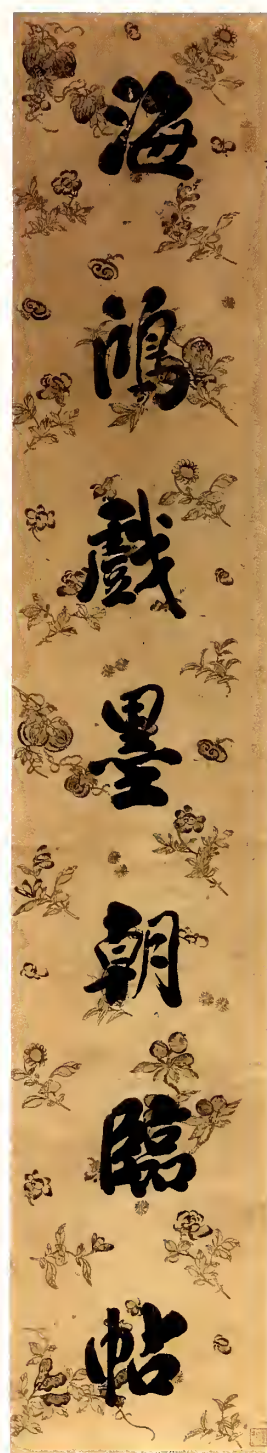 海鴻戲墨朝臨帖